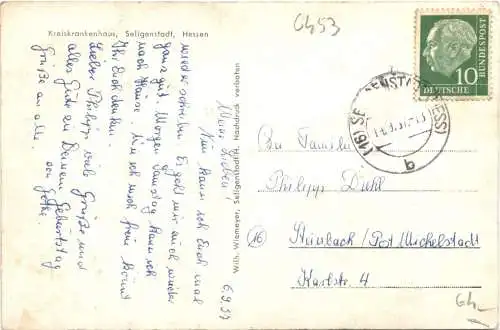 Kreiskrankenhaus, Seligenstadt, Hessen
6453
6.9.57
Meine Lieben!
Nun kann ich Euch mal
wieder schreiben. Es geht mir auch wieder
ganz gut. Morgen Samstag kann ich
nach Hause. ich mich freue könnt
Ihr Euch denken.
Lieber Philipp viele Grüße und
alles Gute zu Deinem Geburtstag
Grüße an alle.
von
Wilh. Wiemeyer, Seligenstadt/H. Nachdruck verboten
DEUTSCHE BUNDESPOST
10
(16) SELIGENSTADT (HESS)
b
An Familie
Philipp Diehl
(16) Steinbach/Post Michelstadt
Karlstr. 4